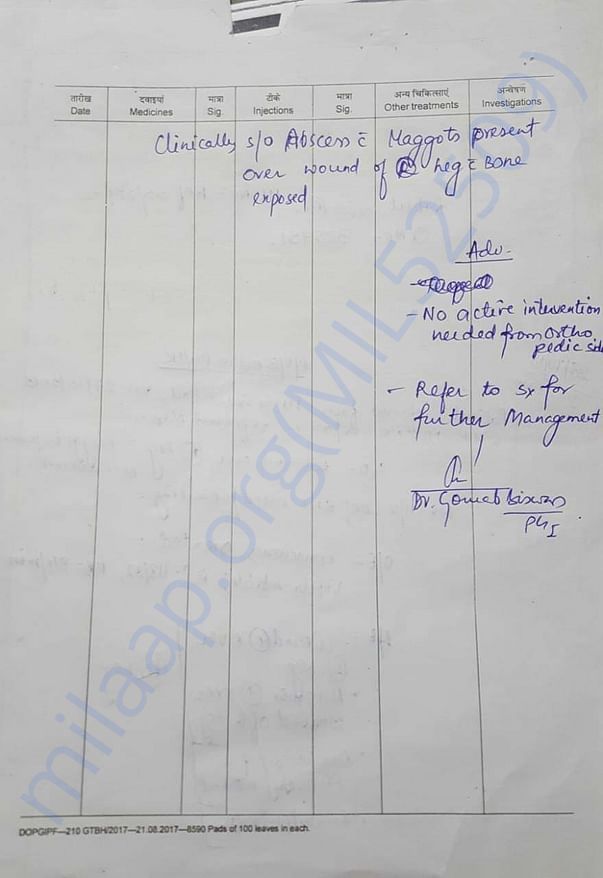 तारीख दवाइयां मात्रा टीके मात्रा अन्य चिकित्साएं अन्वेषण
Date Medicines Sig. Injections Sig. Other treatments Investigations
Clinically s/o Abscess c̄ Maggots present
over wound of Ⓡ Leg c̄ Bone
exposed
Adv.
- No active intervention
needed from Ortho
pedic side
- Refer to Sx for
further Management
Dr.
PG I
milaap.org(MIL525509)
DOPGIPF—210 GTBH/2017—21.08.2017—8590 Pads of 100 leaves in each.